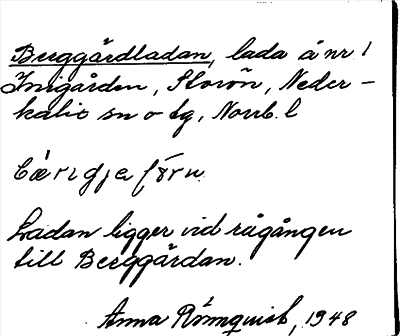 Berggårdladan, lada å nr 1
Inigården, Storön, Neder-
kalix sn o tg, Norrb. l
Ladan ligger vid rågången
till Berggårdan.
Anna Römquist, 1948